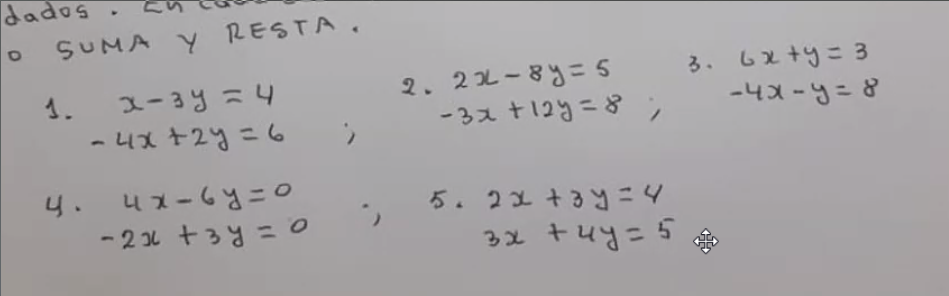 dados. En
o SUMA Y RESTA.
1. x-3y=4
-4x+2y=6 ;
2. 2x-8y=5
-3x+12y=8 ;
3. 6x+y=3
-4x-y=8
4. 4x-6y=0
-2x+3y=0 ;
5. 2x+3y=4
3x+4y=5